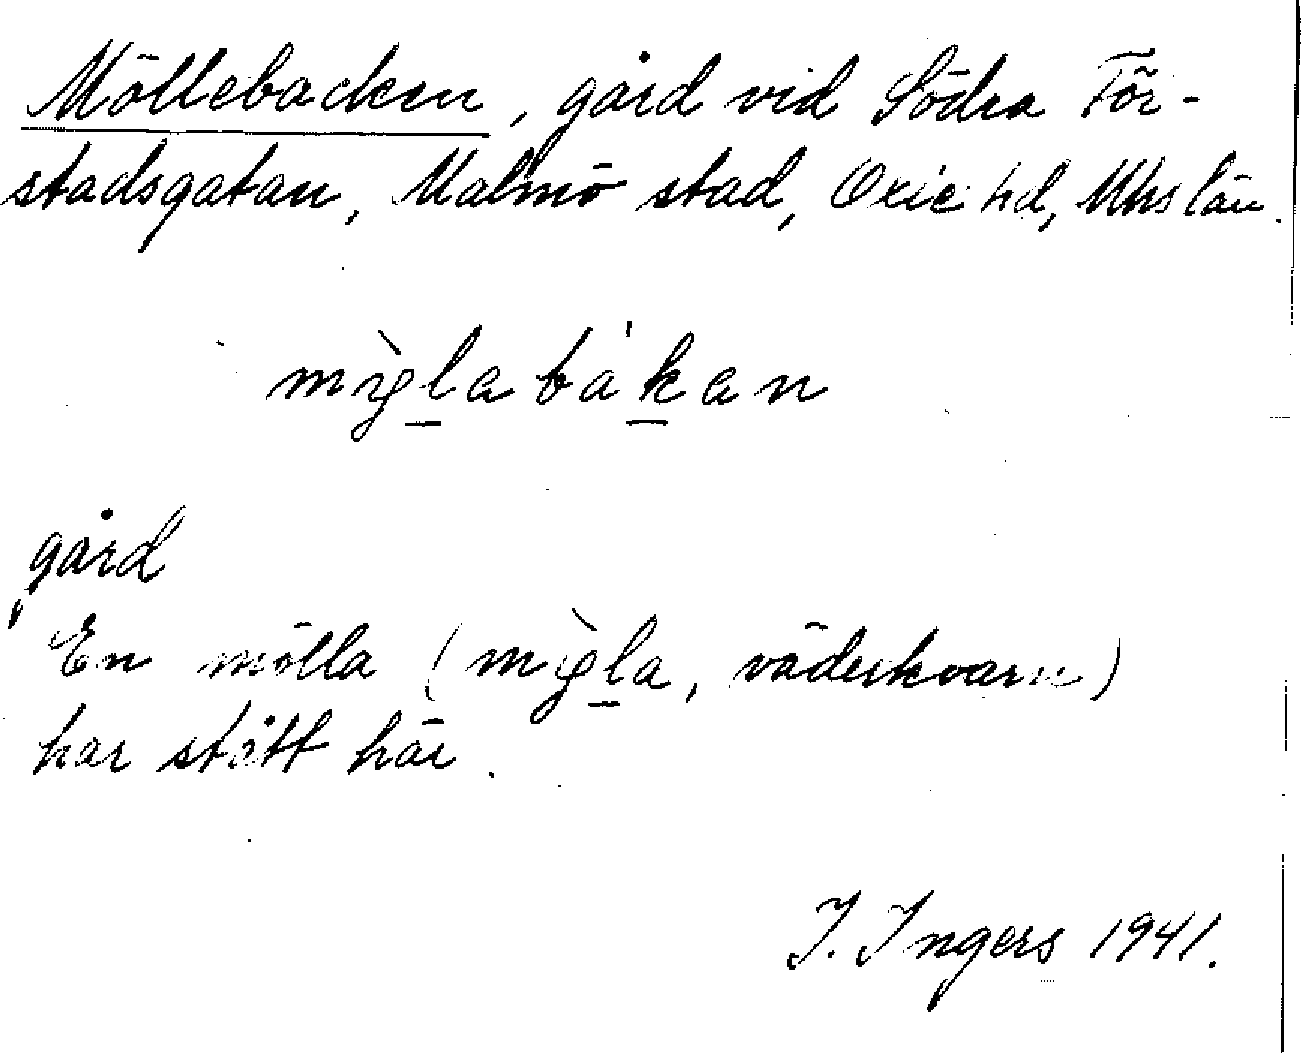 Möllebacken, gård vid Södra För-
stadsgatan, Malmö stad, Oxie hd, Mhs län.
gård
En mölla (väderkvarn)
har stått här.
I. Ingers 1941.